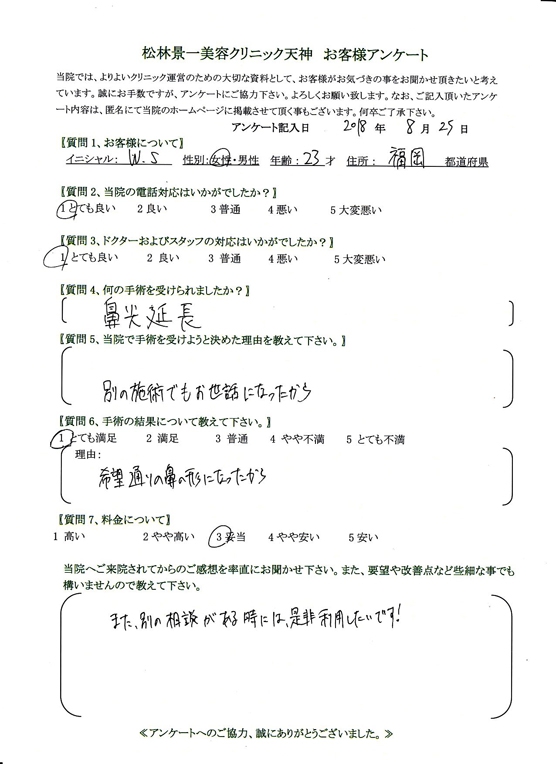 松林景一美容クリニック天神 お客様アンケート
当院では、よりよいクリニック運営のための大切な資料として、お客様がお気づきの事をお聞かせ頂きたいと考え
ています。誠にお手数ですが、アンケートにご協力下さい。よろしくお願い致します。なお、ご記入頂いたアンケ
ート内容は、匿名にて当院のホームページに掲載させて頂く事もございます。何卒ご了承下さい。
アンケート記入日 2018 年 8 月 25 日
〖質問1、お客様について〗
イニシャル: W.S 性別:女性・男性 年齢:23才 住所: 福岡 都道府県
〖質問2、当院の電話対応はいかがでしたか?〗
1とても良い 2良い 3普通 4悪い 5大変悪い
〖質問3、ドクターおよびスタッフの対応はいかがでしたか?〗
1とても良い 2良い 3普通 4悪い 5大変悪い
〖質問4、何の手術を受けられましたか?〗
鼻尖延長
〖質問5、当院で手術を受けようと決めた理由を教えて下さい。〗
別の施術でもお世話になったから
〖質問6、手術の結果について教えて下さい。〗
1とても満足 2満足 3普通 4やや不満 5とても不満
理由:
希望通りの鼻の形になったから
〖質問7、料金について〗
1高い 2やや高い 3妥当 4やや安い 5安い
当院へご来院されてからのご感想を率直にお聞かせ下さい。また、要望や改善点など些細な事でも
構いませんので教えて下さい。
また、別の相談がある時には、是非利用したいです!
≪アンケートへのご協力、誠にありがとうございました。≫